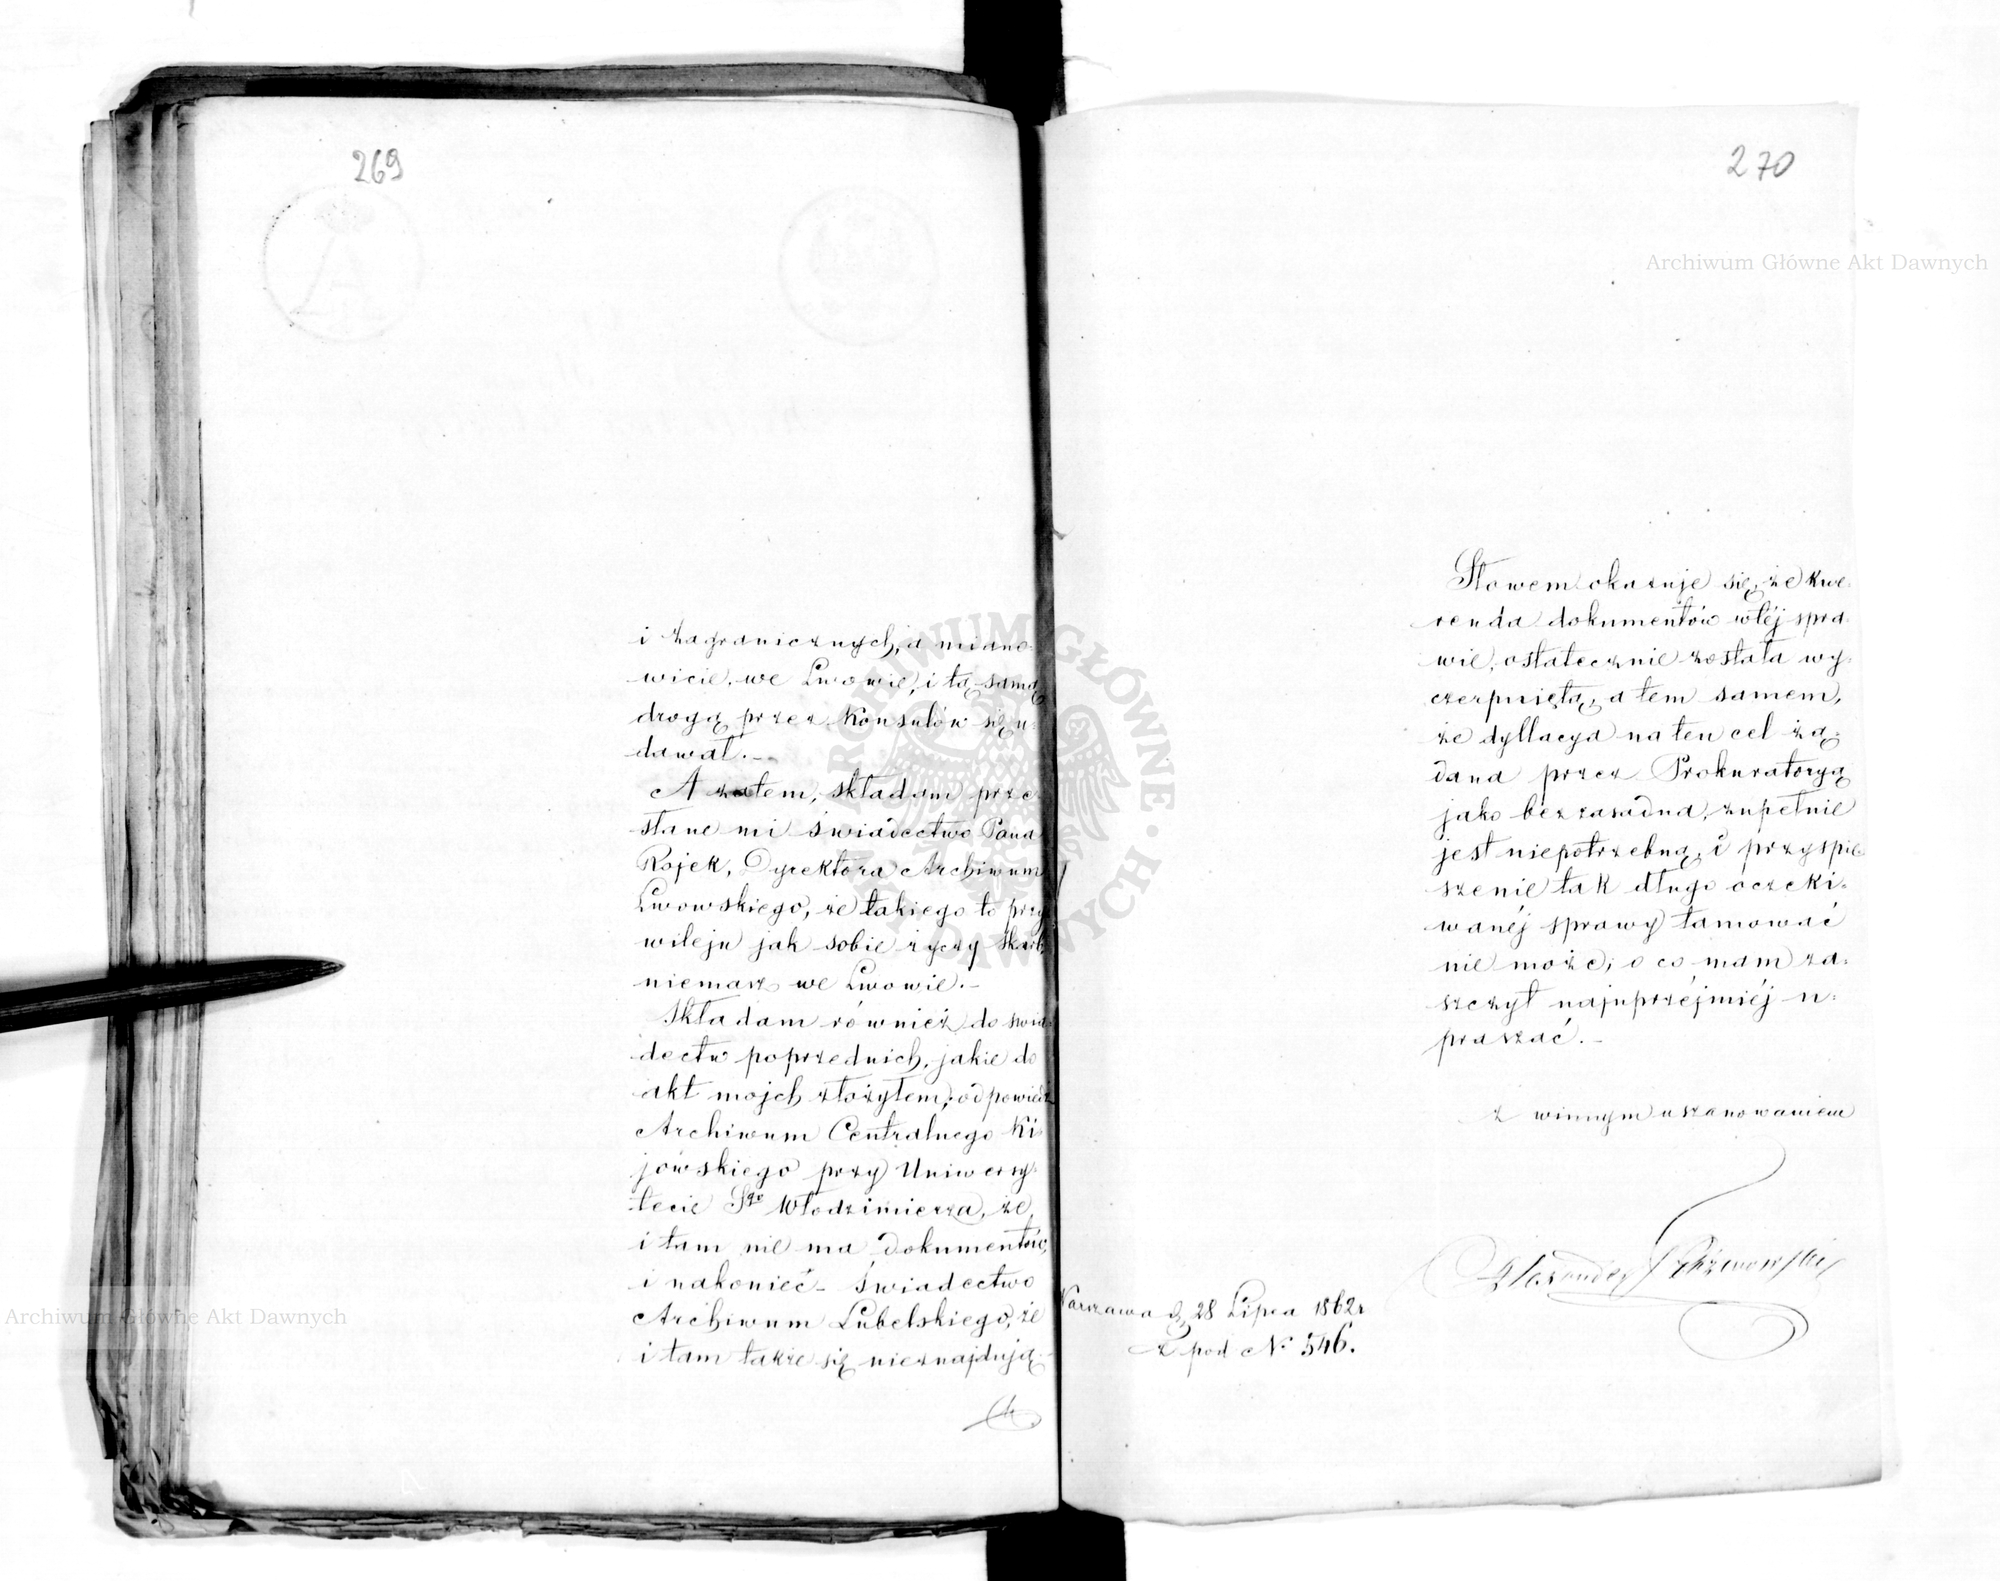 269
i zagranicznych, a miano-
wicie, we Lwowie, i tą samą
drogą przez Konsulów się u-
dawał.-
A zatem, składam prze-
słane mi świadectwo Pana
Rojek, Dyrektora Archiwum
Lwowskiego, że takiego to przy
wileju jak sobie życzy Skarb,
niemasz we Lwowie.-
Składam również do świa-
dectw poprzednich, jakie do
akt mojch złożyłem, odpowiedź
Archiwum Centralnego Ki-
jowskiego przy Uniwersy-
tecie Sgo Włodzimierza, że
i tam nie ma dokumentów,
i nakonieć - świadectwo
Archiwum Lubelskiego, że
i tam także się nieznajdują.-
270
Słowem okazuje się, że kwe-
renda dokumentów w téj spra-
wie, ostatecznie została wy-
czerpniętą, a tem samem,
że dyllacya na ten cel żą-
dana przez Prokuratoryą
jako bezzasadna, zupełnie
jest niepotrzebną, i przyspie
szenie tak długo oczeki-
wanéj sprawy tamować
nie może, o co mam za-
szczyt najuprzéjmiéj u-
praszać.-
z winnym uszanowaniem
Alexander
Warszawa d. 28 Lipca 1862 r
z pod N 546.
Archiwum Główne Akt Dawnych
Archiwum Główne Akt Dawnych
ARCHIWUM GŁÓWNE AKT DAWNYCH